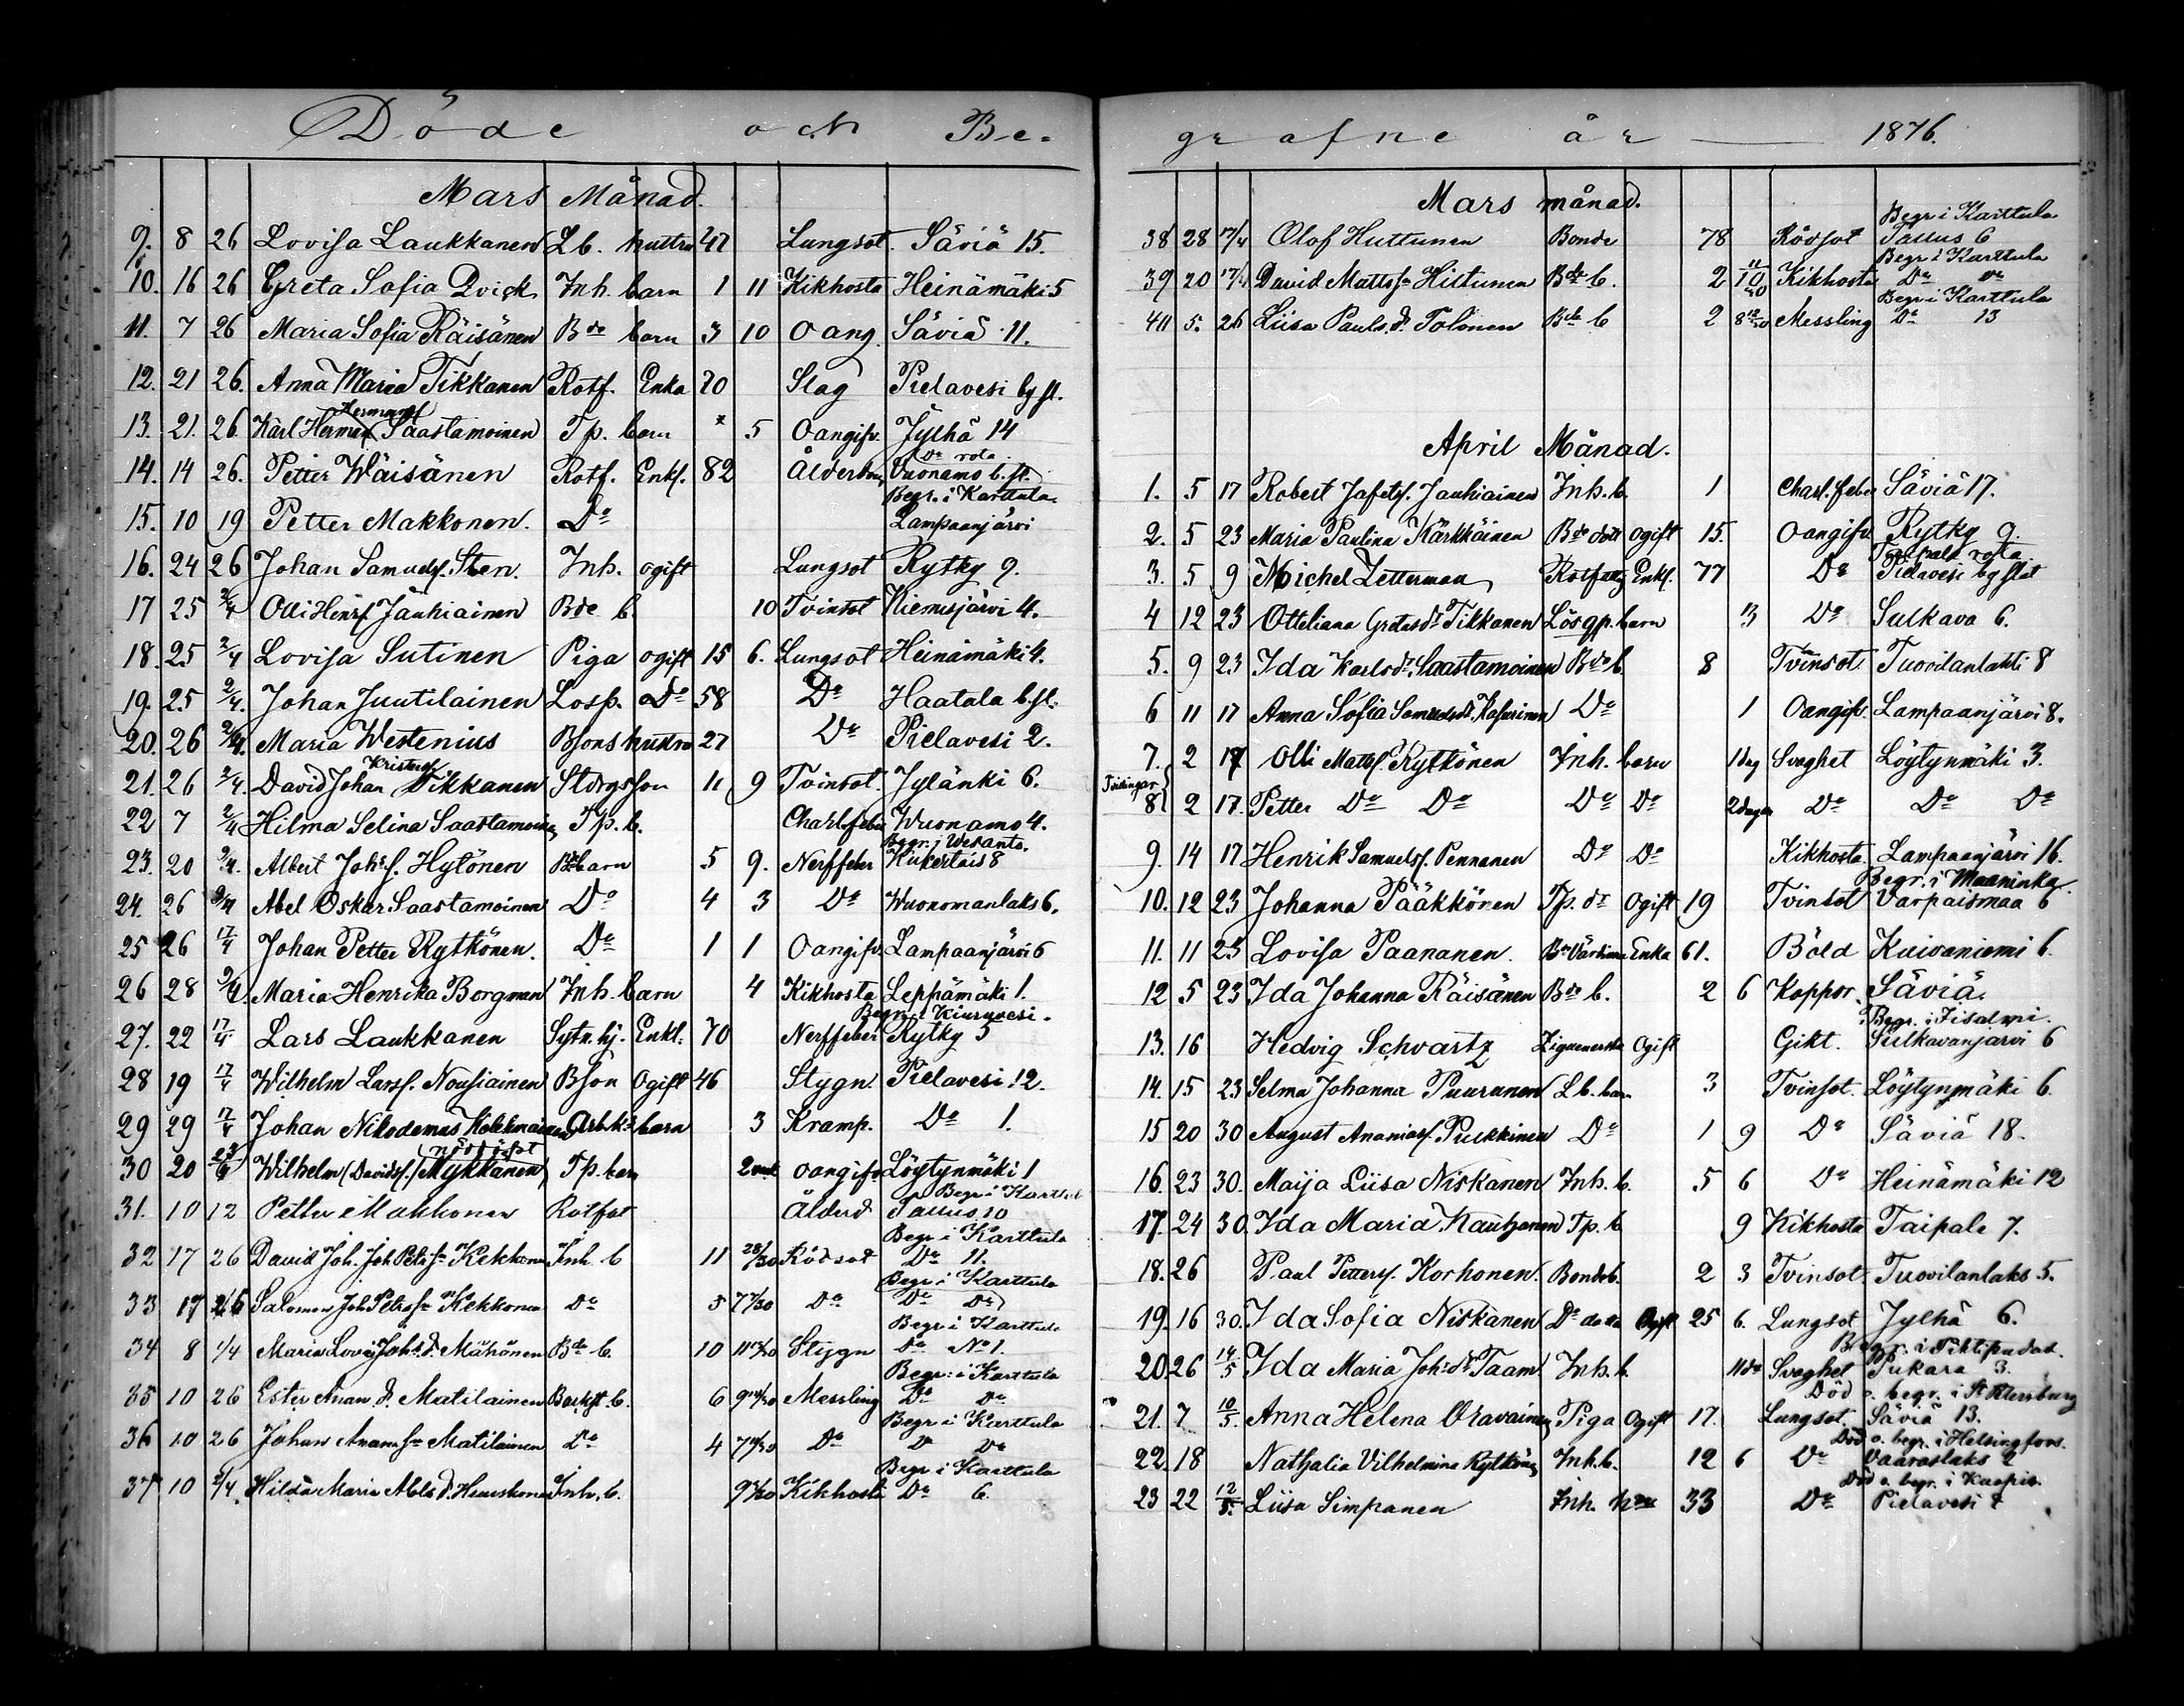 Döde och Be-
Mars Månad.
9. 8 26 Lovisa Laukkanen Lb. hustru 47 Lungsot. Säviä 15.
10. 16 26 Greta Sofia Qvick Inh. barn 1 11 Kikhosta Heinämäki 5
11. 7 26 Maria Sofia Räisänen Bde barn 3 10 Oang. Säviä 11.
12. 21 26. Anna Maria Tikkanen Rotf. Enka 70 Slag Pielavesi by sl.
Hermansf
13. 21. 26. Karl Herman Saastamoinen Tp. barn 5 Oangifv. Jylhä 14
Do rota.
14. 14 26. Petter Wäisänen Rotf. Enkl. 82 Ålderdom Vuonamo b. sl.
Begr. i Karttula.
15. 10 19 Petter Makkonen. Do Lampaanjärvi
16. 24 26 Johan Samuelsf. Sten. Inh. ogift Lungsot Rytky 9.
17 25 2/4 Olli Henrsf Jauhiainen Bde b. 10 Tvinsot Kiemisjärvi 4.
18. 25 2/4 Lovisa Sutinen Piga ogift 15 6. Lungsot Heinämäki 4.
19. 25 2/4. Johan Juutilainen Losp. Do 58 Do Haatala b.sl.
20. 26 2/4. Maria Westenius Bsons hustru 27 Do Pielavesi 2.
Kristersf
21. 26 2/4. David Johan Tikkanen Stdrgsson 11 9 Tvinsot. Jylänki 6.
22 7 2/4 Hilma Selina Saastamoinen Tp. b. Charl.feber Wuonamo 4.
Begr. i Wesanto.
23. 20 2/4. Albert Johsf. Hytönen Bdebarn 5 9. Nerffeber Kukertais 8
24. 26 2/4 Abel Oskar Saastamoinen Do 4 3 Do Wuonomanlaks 6.
25 26 17/4 Johan Petter Rytkönen. Do 1 1 Oangifv. Lampaanjärvi 6
26 28 2/4. Maria Henrika Borgman Inh. barn 4 Kikhosta Leppämäki 1.
Begr. i Kiuruvesi.
27. 22 17/4 Lars Laukkanen Sytn. hj. Enkl. 70 Nerffeber Rytky 5
28 19 17/4 Wilhelm Larsf. Nousiainen Bson Ogift 46 Stygn. Pielavesi 12.
29 29 17/4 Johan Nikodemus Kolehmainen Arb.ks barn 3 Kramp. Do 1.
nöddöpt
30 20 23/4 Wilhelm (Davidsf.) Mykkänen Tp. barn 2 veck oangifv Löytynmäki 1
Begr i Karttul
31. 10 12 Petter Makkonen Rotfat Ålderd Tallus 10
Begr i Karttula
32 17 26 David Joh. Joh Petrs Sn Kekkonen Inh b 11 28/30 Rödsot Do 11.
Begr i Karttula
33 17 26 Salomon Joh Petrs Sn Kekkonen Do 5 7 7/30 Do Do Do
Begr i Karttula
34 8 1/4 Maria Lovisa Johs d. Mähönen Bde b. 10 Stygn Do No 1.
Begr. i Karttula
35 10 26 Ester Anan d. Matilainen Backst b. 6 Messling Do Do
Begr i Karttula
36 10 26 Johan Anans Sn Matilainen Do 4 Do Do Do
Begr i Karttula
37 10 2/4. Hilda Maria Abels d. Heiskanen Inh. b. Kikhosta Do 6.
grafne år 1876.
Mars månad.
Begr i Karttula
38 28 17/4 Olof Huttunen Bonde 78 Rödsot Tallus 6
Begr i Karttula
39 20 17/4 David Matts Sn Hiltunen Bde b. 2 Kikhosta Do Do
Begr i Karttula
40 5. 26 Liisa Pauls. d. Tolonen Bde b 2 Messling Do 13
April Månad.
1. 5 17 Robert Jafetsf. Jauhiainen Inh. b. 1 Charl. feber Säviä 17.
2. 5 23 Maria Paulina Kärkkäinen Bde dott Ogift 15. Oangifv. Rytky 9.
Taipale rota
3. 5 9 Michel Zetterman Rotfattig Enkl. 77 Do Pielavesi by slut
4 12 23 Otteliana Gretasdr Tikkanen Lösqp. barn 3 Do Sulkava 6.
5. 9 23 Ida Karlsdr. Saastamoinen Bde b. 8 Tvinsot. Tuovilanlahti 8
6 11 17 Anna Sofia Samuelsdr. Kasurinen Do 1 Oangifv. Lampaanjärvi 8.
7. 2 17 Olli Mattsf. Rytkönen Inh. barn 1 dag Svaghet Löytynmäki 3.
Tvillingar
8 2 17. Petter Do Do Do Do 2 dagar Do Do Do
9. 14 17 Henrik Samuelsf. Pennanen Do Do Kikhosta. Lampaanjärvi 16.
Begr. i Maaninka
10. 12 23 Johanna Pääkkönen Tp. dr Ogift 19 Tvinsot Varpaismaa 6
11. 11 23 Lovisa Paananen. Bde Värdinna Enka 61. Böld Kuivaniemi 6.
12 5 23 Ida Johanna Räisänen Bde b. 2 6 Koppor Säviä.
Begr. i Iisalmi.
13. 16 Hedvig Schvartz Ziguenerska Ogift Gikt. Sulkavanjärvi 6
14. 15 23 Selma Johanna Puuranen Lb. barn 3 Tvinsot. Löytynmäki 6.
15 20 30 August Ananiasf. Pulkkinen Do 1 9 Do Säviä 18.
16. 23 30. Maija Liisa Niskanen Inh. b. 5 6 Do Heinämäki 12
17. 24 30. Ida Maria Kauhanen Tp. b. 9 Kikhosta Taipale 7.
18. 26 Paul Pettersf. Korhonen. Bondeb. 2 3 Tvinsot. Tuovilanlaks 5.
19. 16 30. Ida Sofia Niskanen Do Ogift 25 6. Lungsot Jylhä 6.
Begr. i Pihtipudas.
20. 26 14/5 Ida Maria Joh:dr Taam. Inh. b. Svaghet Pukara 3.
Död o. begr. i St Petersburg
21. 7 10/5. Anna Helena Oravainen Piga Ogift 17. Lungsot. Säviä 13.
Död o. begr. i Helsingfors.
22. 18 Nathalia Vilhelmina Rytkönen Inh. b. 12 6 Do Vaaraslaks 2
Död o. begr. i Kuopio.
23 22 12/5. Liisa Simpanen Inh. hru 33 Do Pielavesi